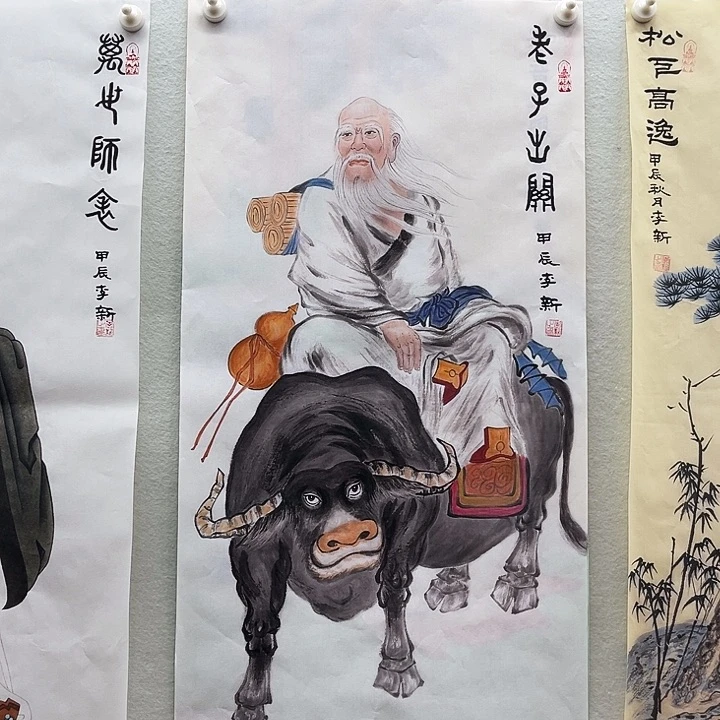 萬世師表 甲辰李新
老子出關 甲辰李新
松下高逸 甲辰秋月李新